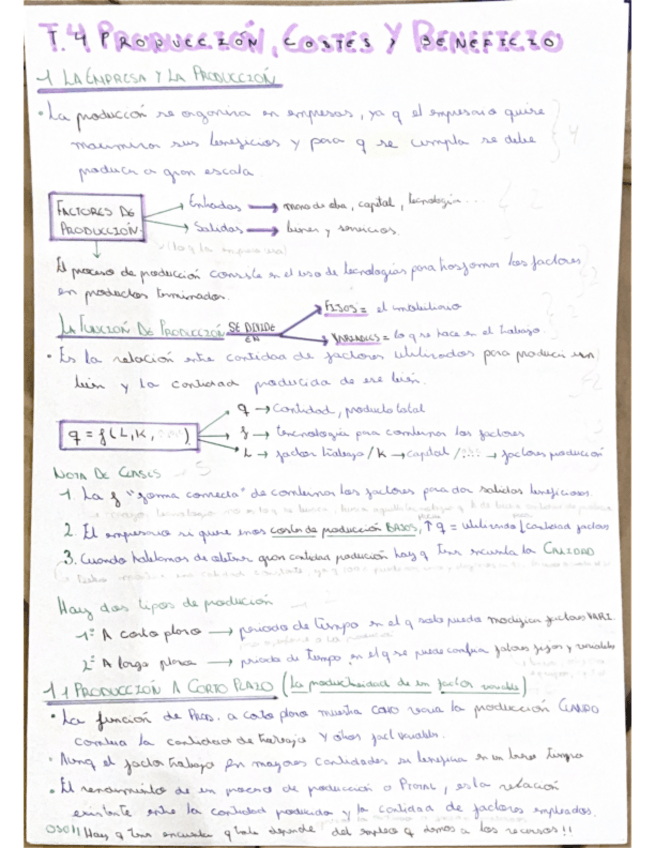 T.4 PRODUCCIÓN, COSTES Y BENEFICIO
1 LA EMPRESA Y LA PRODUCCIÓN
• La producción se organiza en empresas, ya q el empresario quiere
maximizar sus beneficios y para q se cumpla se debe
producir a gran escala.
FACTORES DE PRODUCCIÓN
Entradas → mano de obra, capital, tecnología...
Salidas → bienes y servicios.
El proceso de producción consiste en el uso de tecnologías para trasformar los factores
en productos terminados.
LA FUNCIÓN DE PRODUCCIÓN SE DIVIDE EN
FIJOS = el inmobiliario
VARIABLES = lo q se hace en el trabajo.
• Es la relación entre cantidad de factores utilizados para producir un
bien y la cantidad producida de ese bien.
q = f(L, K, ...)
q → cantidad, producto total
f → tecnología para combinar los factores
L → factor trabajo / K → capital / ... → factores producción
NOTA DE CLASES
1. La f "forma correcta" de combinar los factores para dar salidas beneficiosas.
2. El empresario si quiere unos costes de producción BAJOS, ↑ q = utilizando ↓ cantidad factores
3. Cuando hablamos de obtener gran cantidad producción hay q tener en cuenta la CALIDAD
Hay dos tipos de producción
1º A corto plazo → periodo de tiempo en el q solo puedo modificar factores VARI.
2º A largo plazo → periodo de tiempo en el q se puede factores fijos y variables
1.1 PRODUCCIÓN A CORTO PLAZO (La productividad de un factor variable)
• La función de PROD. a corto plazo muestra como varía la producción CUANDO
cambia la cantidad de trabajo y otros fact variables.
• Aunq el factor trabajo en mayores cantidades se beneficia en un
• El rendimiento de un proceso de producción o , es la relación
existente entre la cantidad producida y la cantidad de factores empleados.
OJO!! Hay q tener en cuenta q todo depende del empleo q damos a los recursos!!